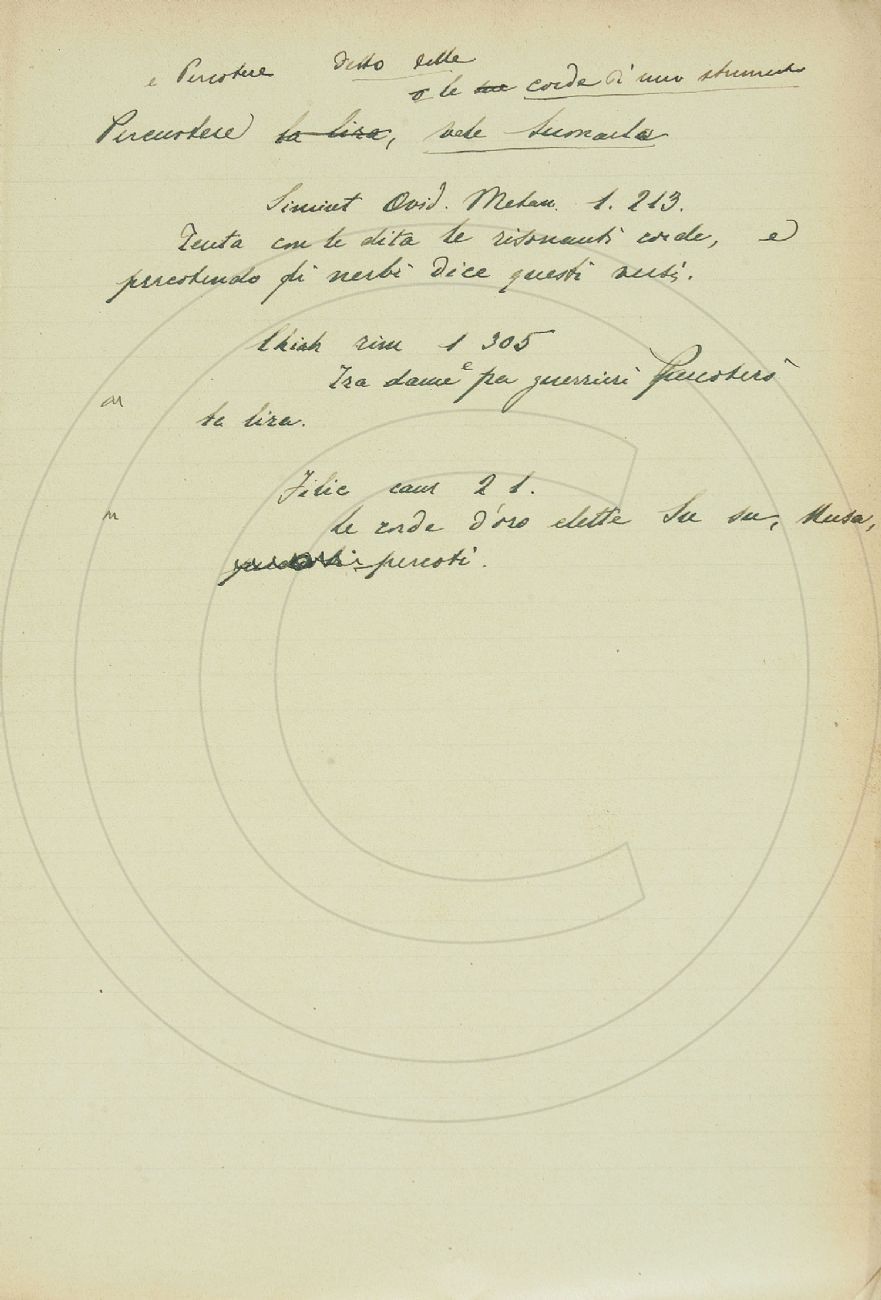 e Percotere detto delle
o le sue corde di uno strumento
Percuotere la lira, vale Suonarla
Simint Ovid. Metam. 1. 213.
Tenta con le dita le risonanti corde, e
percotendo gli nerbi dice questi versi.
Chiab rim 1 305
Tra dame e fra guerrieri Percoterò
la lira.
Filic canz 2 1.
Le corde d'oro elette Su su, Musa,
percoti.